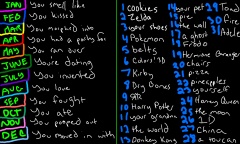 JAN You smell like
FEB You kissed
MAR You morphed into
APR You had a potty for
MAY You ran over
JUNE You're dating
JULY You invented
AUG You love
SEP You fought
OCT You ate
NOV You pooped out
DEC You moved in with
1 Cookies
2 Zelda
3 your shoes
4 Pokemon
5 belts
6 Colors! 3D
7 Kirby
8 Dry Bones
9
10 Harry Potter
11 your grandma
12 the world
13 Donkey Kong
14 your pet
15 pie
16 the wall
17 a ghost
18 Fiddo
19 Hermione Granger
20 chairs
21 pizza
22 pineapples
23 yourself
24 Honey Queen
25 the moon
26 1D
27 China
28 a toucan
29 Toad
30 Pie
31